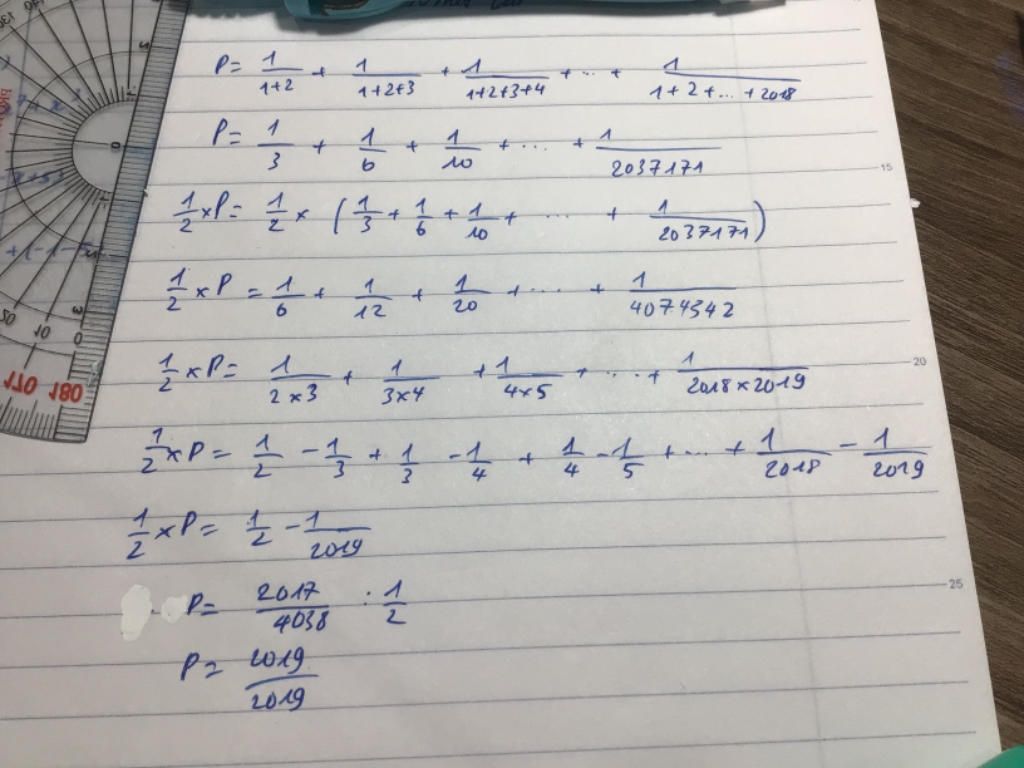 P = 1/(1+2) + 1/(1+2+3) + 1/(1+2+3+4) + ... + 1/(1+2+...+2018)
P = 1/3 + 1/6 + 1/10 + ... + 1/2037171
15
1/2 × P = 1/2 × (1/3 + 1/6 + 1/10 + ... + 1/2037171)
1/2 × P = 1/6 + 1/12 + 1/20 + ... + 1/4074342
20
1/2 × P = 1/(2×3) + 1/(3×4) + 1/(4×5) + ... + 1/(2018×2019)
1/2 × P = 1/2 - 1/3 + 1/3 - 1/4 + 1/4 - 1/5 + ... + 1/2018 - 1/2019
1/2 × P = 1/2 - 1/2019
25
P = 2017/4038 : 1/2
P = 2019/2019
170 180